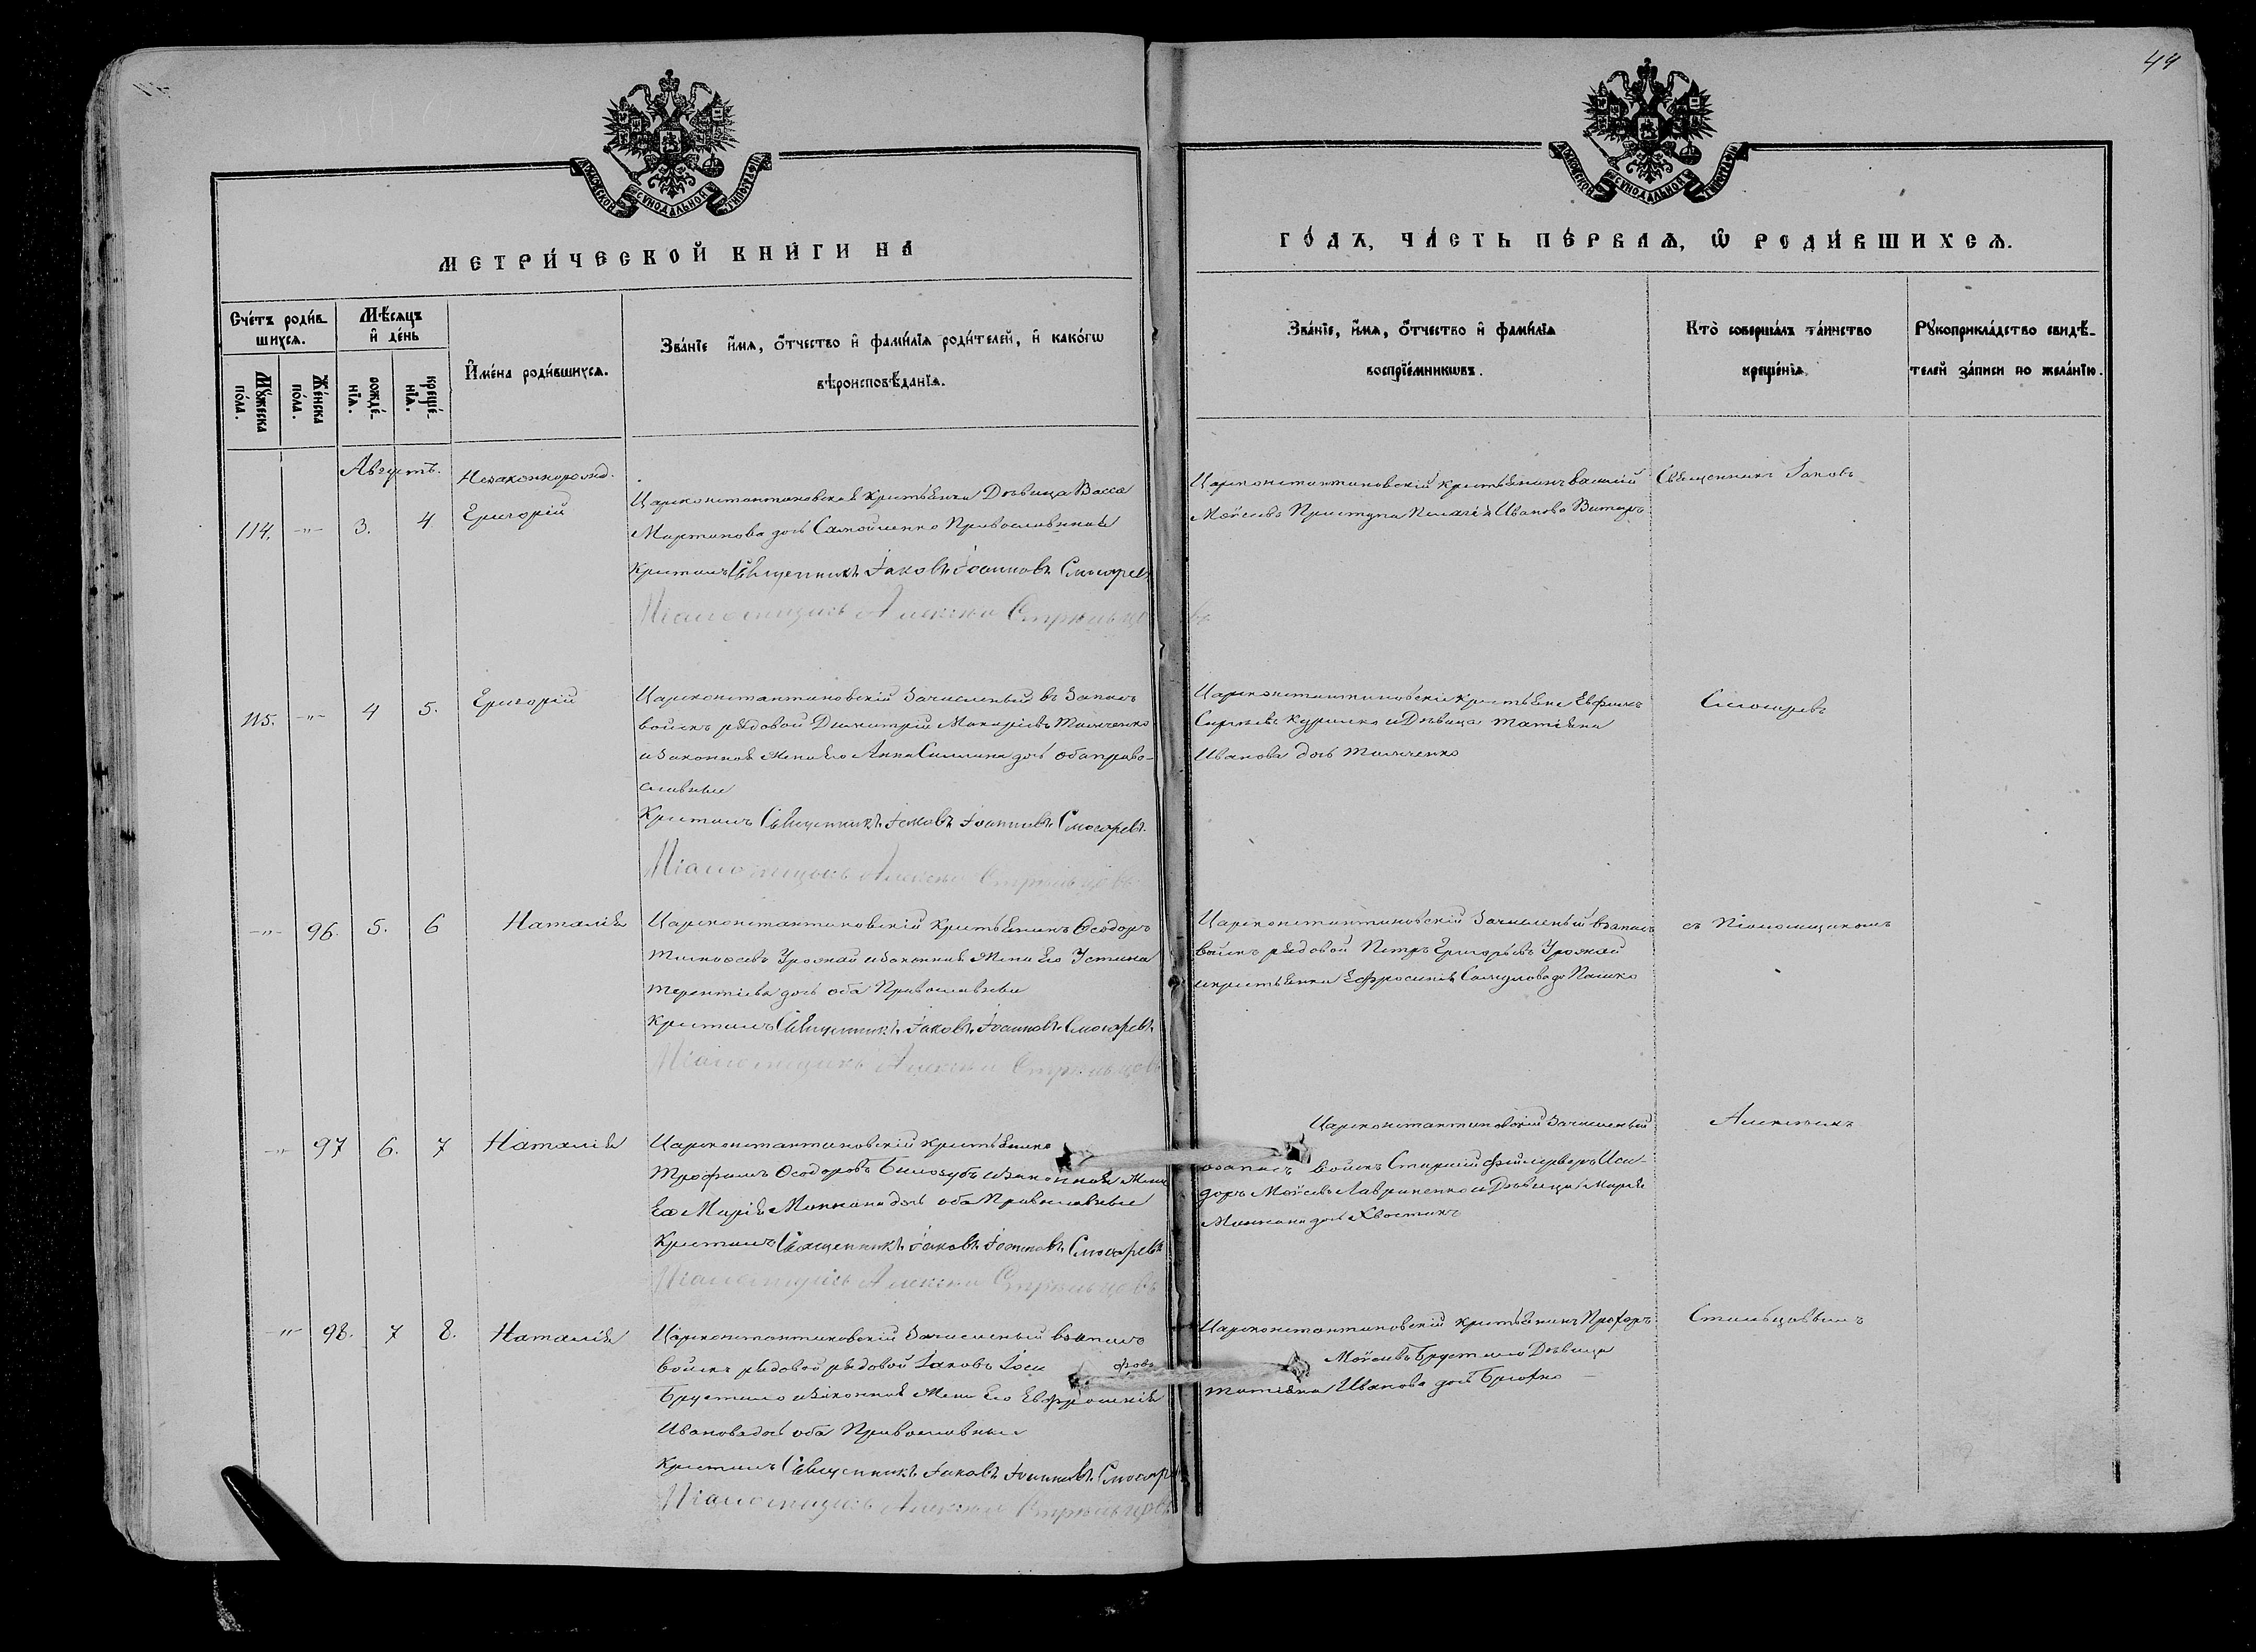 44
МОСКОВСКОЙ СѴНОДАЛЬНОЙ ТИПОГРАФІИ
МОСКОВСКОЙ СѴНОДАЛЬНОЙ ТИПОГРАФІИ
МЕТРИ́ЧЕСКОЙ КНИ́ГИ НА
ГО́ДЪ, ЧА́СТЬ ПЕ́РВАѦ, Ѽ РОДИ́ВШИХСѦ.
Сче́тъ роди́в-
шихсѧ.
Мꙋ́жеска по́ла.
Же́нска по́ла.
Мѣ́сѧцъ
и҆ де́нь
рожде́-
нїѧ.
креще́-
нїѧ.
И҆мена̀ роди́вшихсѧ.
Зва́нїе и҆́мѧ, ѻ҆́тчество и҆ фами́лїѧ роди́телей, и҆ како́гѡ
вѣроисповѣ́данїѧ.
Зва́нїе, и҆́мѧ, ѻ҆́тчество и҆ фами́лїѧ
воспрїе́мникѡвъ.
Кто̀ соверша́лъ та́инство
креще́нїѧ.
Рꙋкоприкла́дство свидѣ́-
телей за́писи по жела́нїю.
Августъ.
Незаконнорожд.
114. -"- 3. 4 Григорій
Цареконстантиновская крестьянка Дѣвица Васса
Мартинова дочь Самойленко Православная
Крестилъ Священникъ Іаковъ Іоанновъ Слюсаревъ
Псаломщикъ Алексѣй Стрѣльцовъ
Цареконстантиновскій крестьянинъ Василій
Моѵсеевъ Приступа Пелагія Иванова
Священникъ Іаковъ
115. -"- 4 5. Григорій
Цареконстантиновскій Зачисленый въ Запасъ
войскъ рядовой Димитрій Макаріевъ Ткаченко
и Законная Жена Его Анна дочь оба право-
славные
Крестилъ Священникъ Іаковъ Іоанновъ Слюсаревъ
Псаломщикъ Алексѣй Стрѣльцовъ
Цареконстантиновскіе крестьяне
Сергѣевъ и Дѣвица Татіяна
Иванова дочь Ткаченко
Слюсаревъ
-"- 96. 5. 6 Наталія
Цареконстантиновскій крестьянинъ Ѳеодоръ
Тимоѳеевъ Урожай и Законная Жена Его Устина
Терентіева дочь оба Православные
Крестилъ Священникъ Іаковъ Іоанновъ Слюсаревъ
Псаломщикъ Алексѣй Стрѣльцовъ
Цареконстантиновскій Зачисленый взапасъ
войскъ рядовой Петръ Григорьевъ Урожай
и крестьянка Ефросинія Самуилова до Пашко
съ Псаломщикомъ
-"- 97 6. 7 Наталія
Цареконстантиновскій крестьянинъ
Трофимъ Ѳеодоровъ Билозубъ и Законная Жена
Ео Марія дочь оба Православные
Крестилъ Священникъ Іаковъ Іоанновъ Слюсаревъ
Псаломщикъ Алексѣй Стрѣльцовъ
Цареконстантиновскій Зачисленый
взапасъ войскъ Старшій фейерверкъ Иси-
доръ Моѵсеевъ Лавриненко и Дѣвица Марія
дочь Хвостикъ
Алексѣемъ
-"- 98. 7 8. Наталія
Цареконстантиновскій Зачисленый взапасъ
войскъ рядовой рядовой Іаковъ Іоси фовъ
Брустило и Законная Жена Его Евфросинія
Иванова дочь оба Православные
Крестилъ Священникъ Іаковъ Іоанновъ Слюсаревъ
Псаломщикъ Алексѣй Стрѣльцовъ
Цареконстантиновскій крестьянинъ Прохоръ
Моѵсеевъ Брустило Дѣвица
Татіяна Иванова дочь
Стрельцовымъ